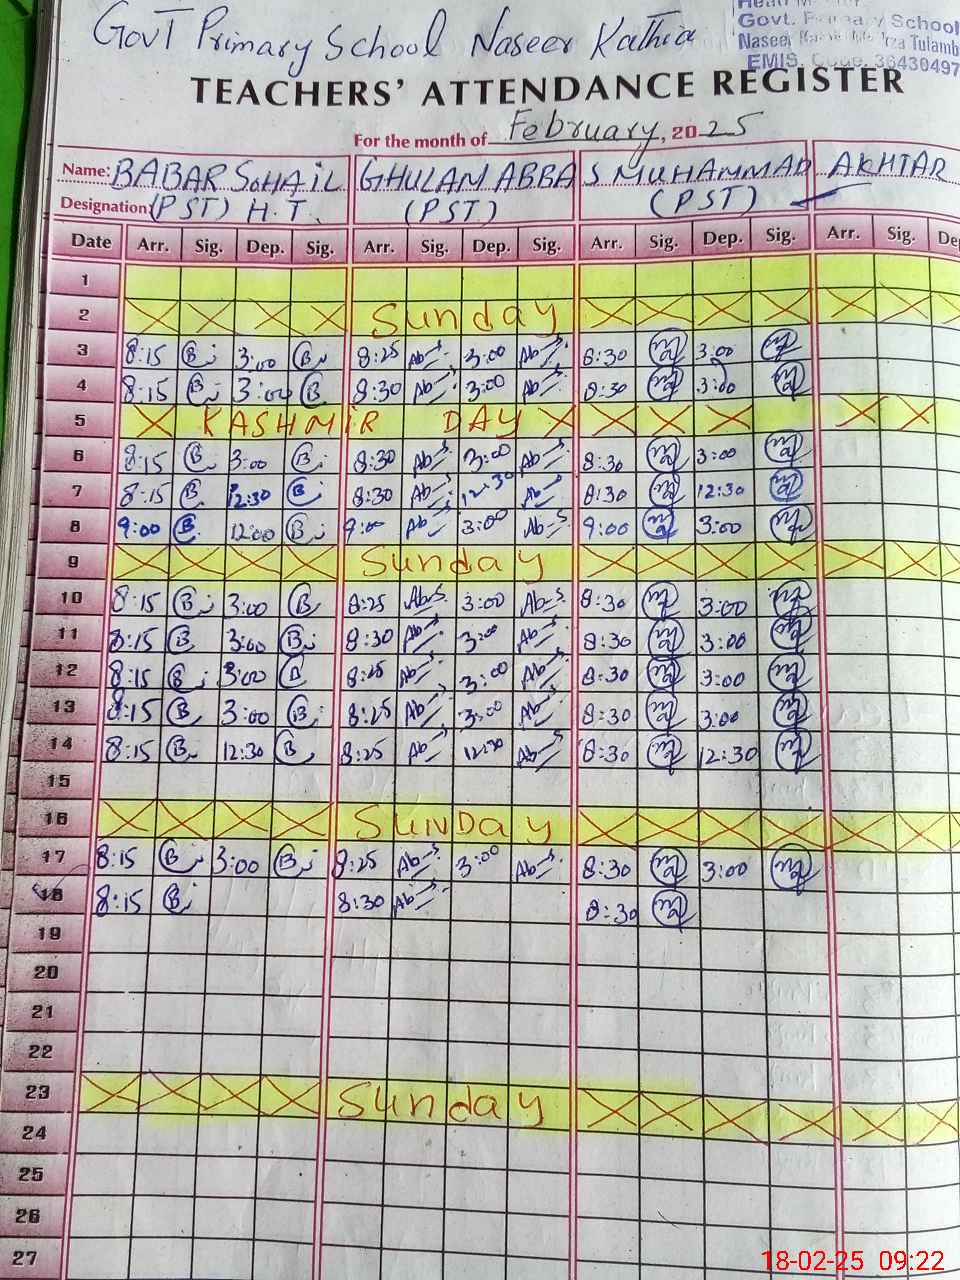 Govt Primary School Naseer Kathia
Govt. Primary School
EMIS. Code. 36430497
TEACHERS' ATTENDANCE REGISTER
For the month of February, 2025
Name: BABAR SOHAIL GHULAM ABBAS MUHAMMAD AKHTAR
Designation: (PST) H.T. (PST) (PST)
Date Arr. Sig. Dep. Sig. Arr. Sig. Dep. Sig. Arr. Sig. Dep. Sig. Arr. Sig.
1
2 Sunday
3 8:15 B 3:00 B 8:25 Abs 3:00 Abs 8:30 3:00
4 8:15 B 3:00 B 8:30 Abs 3:00 Abs 8:30 3:00
5 KASHMIR DAY
6 8:15 B 3:00 B 8:30 Abs 3:00 Abs 8:30 3:00
7 8:15 B 12:30 B 8:30 Abs 12:30 Abs 8:30 12:30
8 9:00 B 12:00 B 9:00 Abs 3:00 Abs 9:00 3:00
9 Sunday
10 8:15 B 3:00 B 8:25 Abs 3:00 Abs 8:30 3:00
11 8:15 B 3:00 B 8:30 Abs 3:00 Abs 8:30 3:00
12 8:15 B 3:00 B 8:25 Abs 3:00 Abs 8:30 3:00
13 8:15 B 3:00 B 8:25 Abs 3:00 Abs 8:30 3:00
14 8:15 B 12:30 B 8:25 Abs 12:30 Abs 8:30 12:30
15
16 SUNDay
17 8:15 B 3:00 B 8:25 Abs 3:00 Abs 8:30 3:00
18 8:15 B 8:30 Abs 8:30
19
20
21
22
23 Sunday
24
25
26
27
18-02-25 09:22